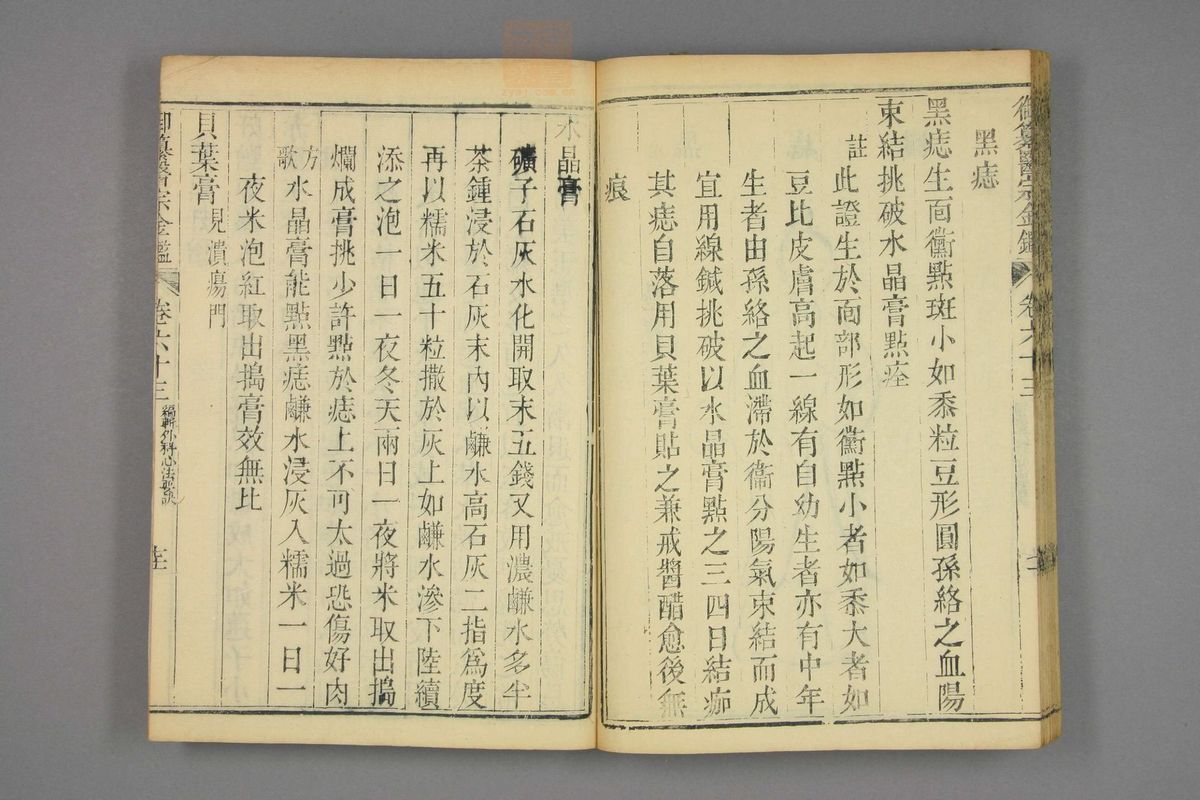 御纂醫宗金鑑
卷六十三
黑痣
黑痣生面黴點斑小如黍粒豆形圓孫絡之血陽
束結挑破水晶膏點痊
註
此證生於面部形如黴點小者如黍大者如
豆比皮膚高起一線有自幼生者亦有中年
生者由孫絡之血滯於衞分陽氣束結而成
宜用線鍼挑破以水晶膏點之三四日結痂
其痣自落用貝葉膏貼之兼戒醬醋愈後無
痕
水晶膏
礦子石灰水化開取末五錢又用濃鹻水多半
茶鍾浸於石灰末內以鹻水高石灰二指爲度
再以糯米五十粒撒於灰上如鹻水滲下陸續
添之泡一日一夜冬天兩日一夜將米取出搗
爛成膏挑少許點於痣上不可太過恐傷好肉
方歌
水晶膏能點黑痣鹻水浸灰入糯米一日一
夜米泡紅取出搗膏效無比
貝葉膏
見潰瘍門
御纂醫宗金鑑
卷六十三
編輯外科心法要訣